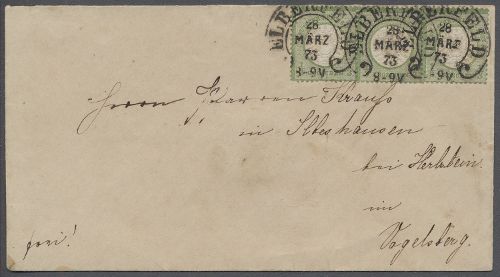 ELBERFELD ELBERFELD ELBERFELD
28 28
MÄRZ MÄRZ MÄRZ
73 73 73
8-9V 8-9V -9V
Herrn Pfarrer Strauß
in Ilbeshausen
bei Herbstein
im
Vogelsberg.
frei!